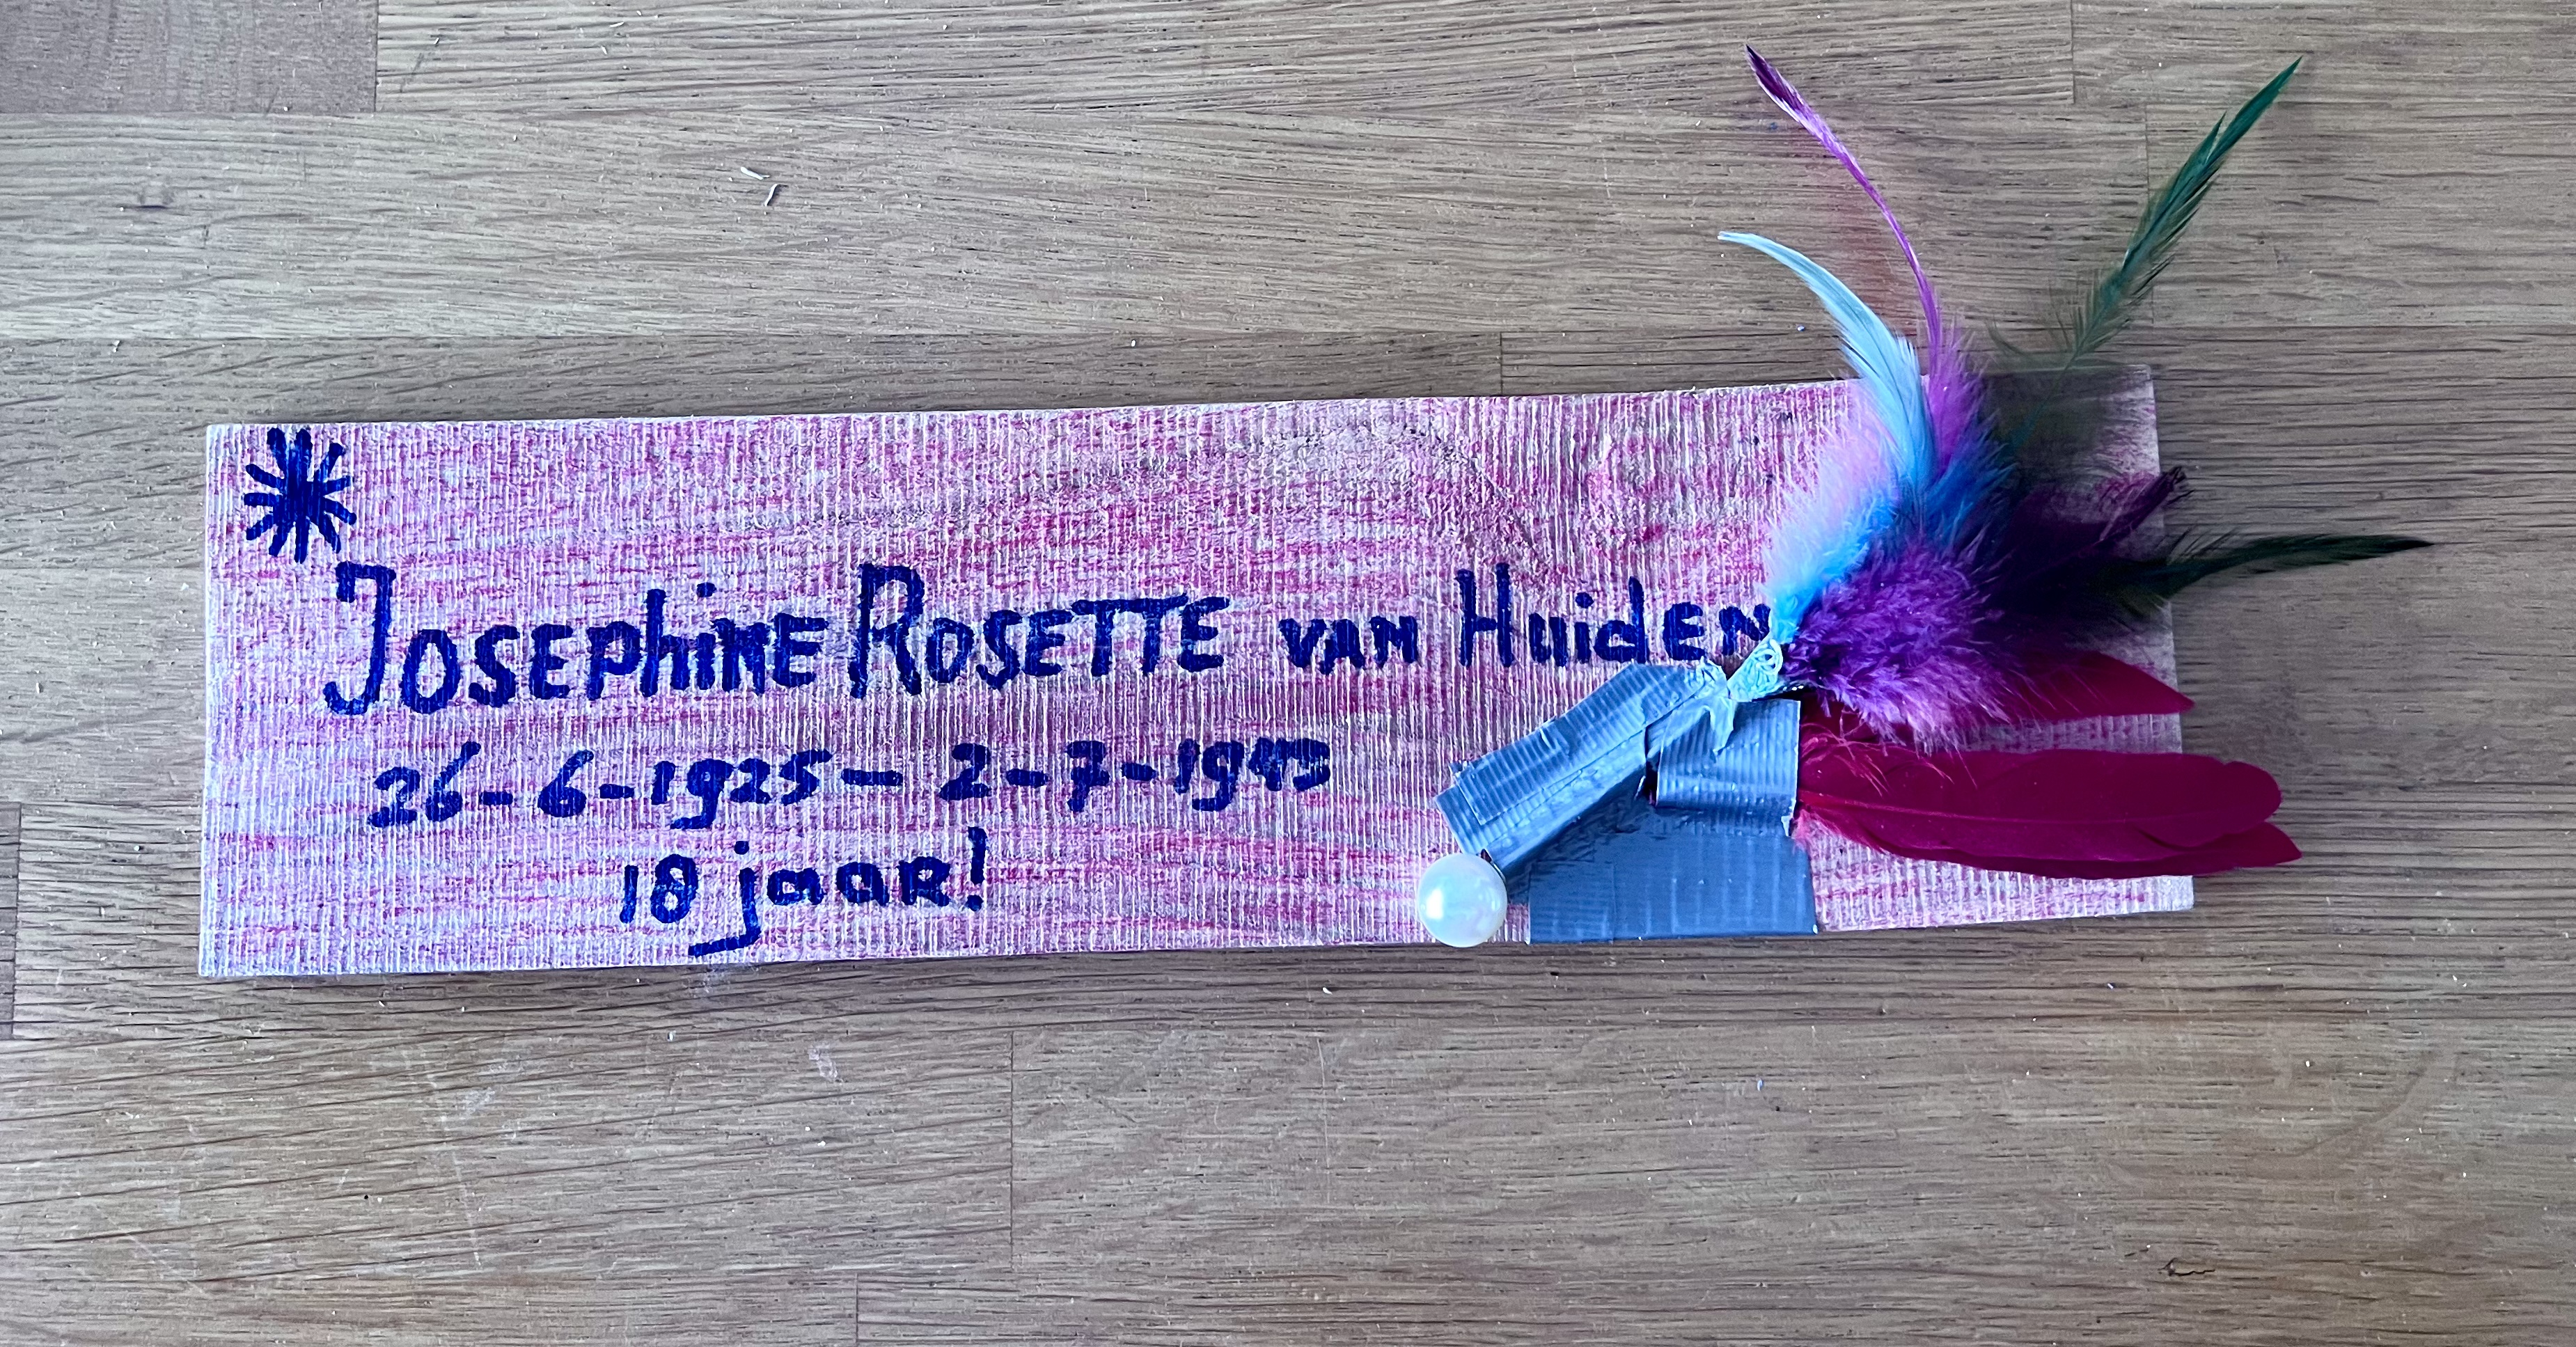 Josephine Rosette van Huiden
26-6-1925 - 2-7-1943
18 jaar!